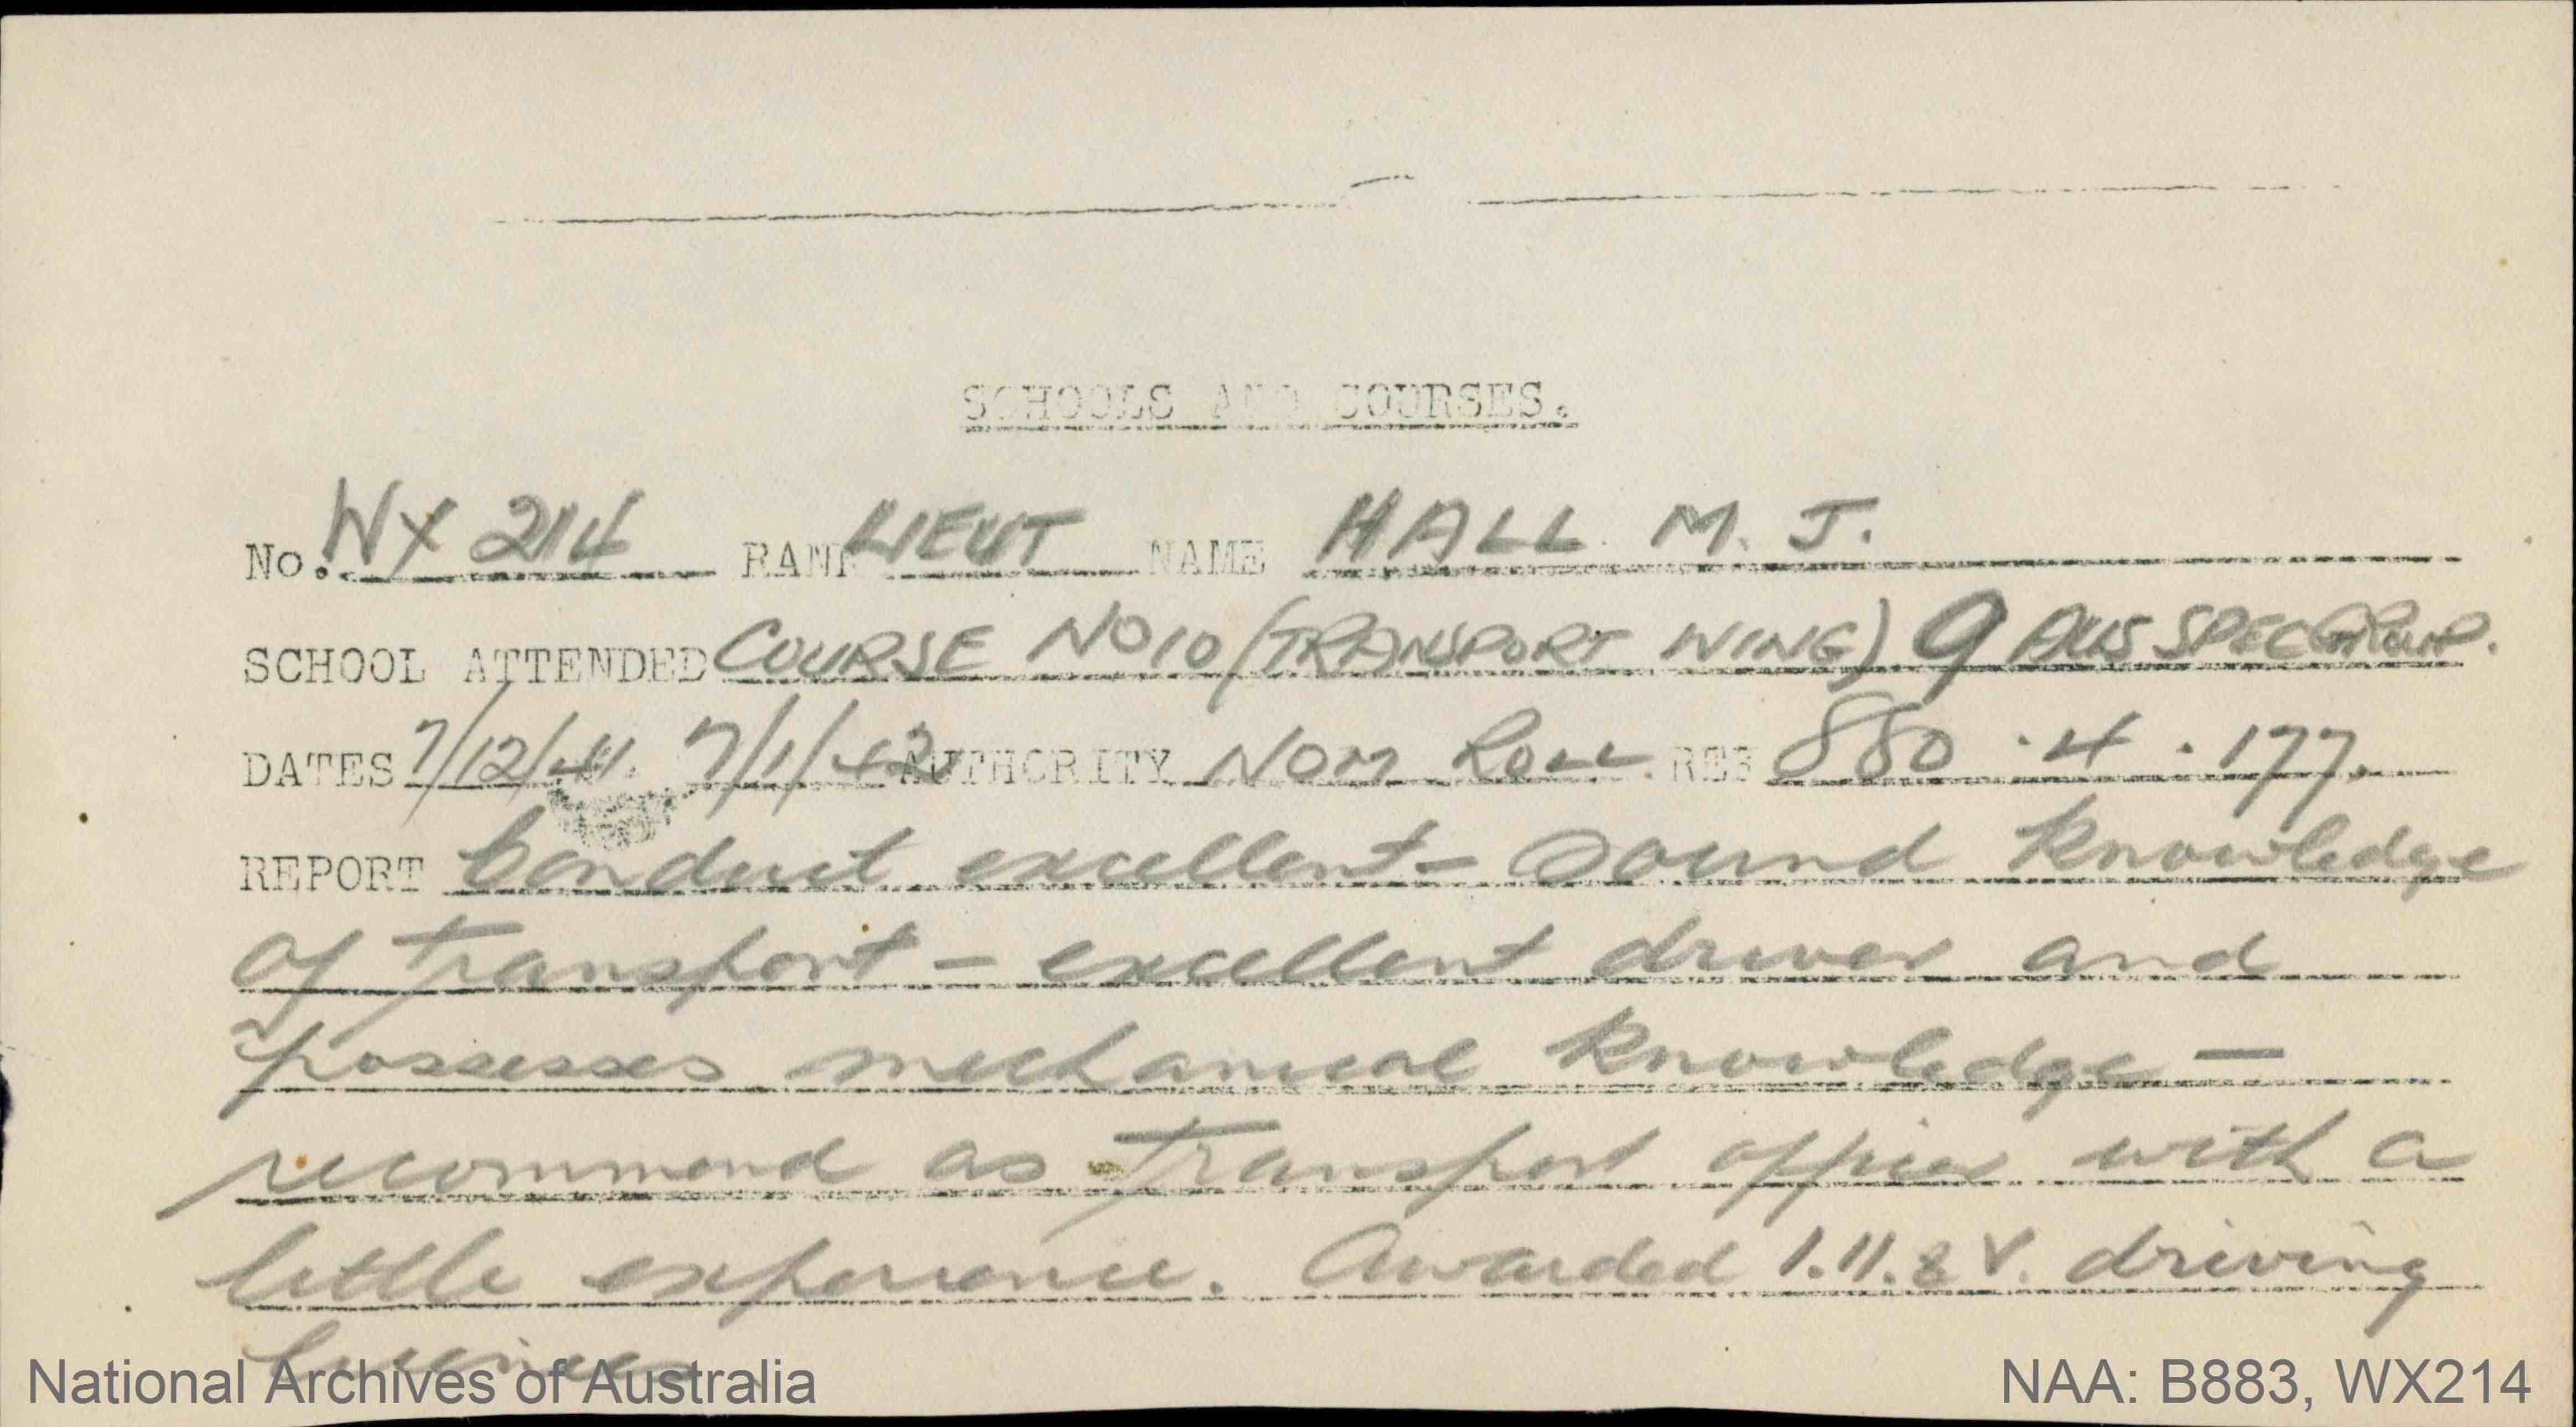 SCHOOLS AND COURSES.
No. WX 214 RANK LIEUT NAME HALL. M. J.
SCHOOL ATTENDED COURSE NO 10 (TRANSPORT WING) 9 AUS SPEC GROUP.
DATES 7/12/41. 7/1/42 AUTHORITY NOM ROLL. REF 880.4.177.
REPORT Conduct excellent - Sound knowledge
of transport - excellent driver and
possesses mechanical knowledge -
recommend as transport officer with a
little experience. Awarded 1.11. & V. driving
National Archives of Australia
NAA: B883, WX214